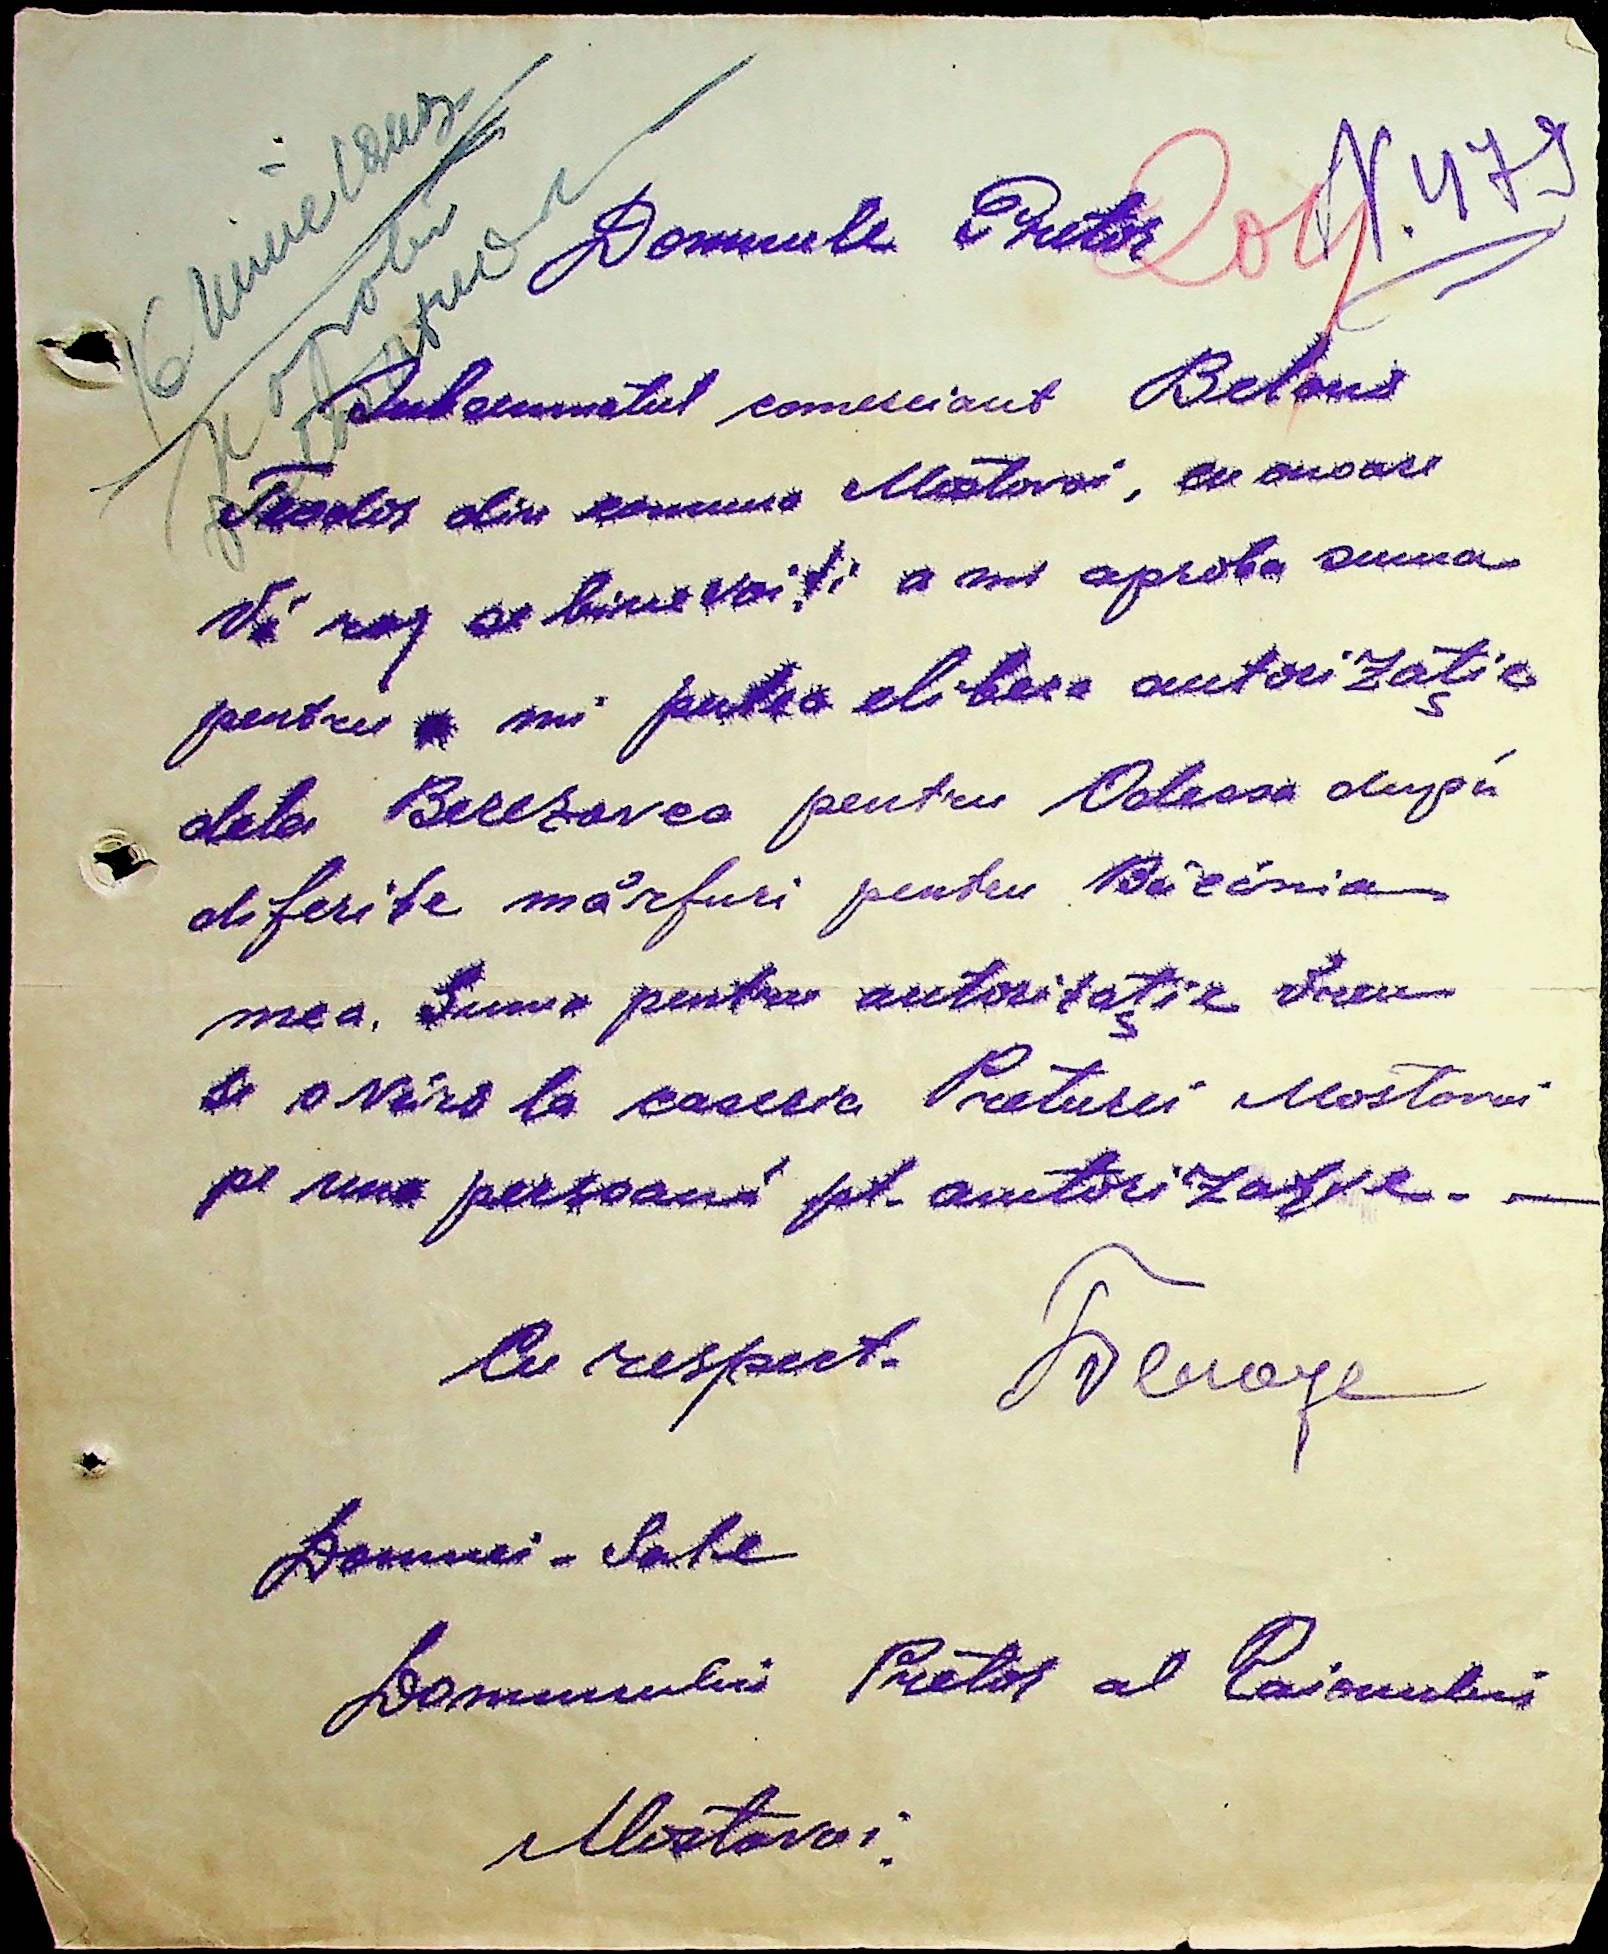 N. 479
Domnule Pretor
Subsemnatul comerciant Belous
Teodor din comuna Mostovoi, cu onoare
Vă rog se binevoiți a mi aproba suma
pentru a mi putea elibera autorizație
dela Berezovca pentru Odessa după
diferite mărfuri pentru Băcănia
mea. Suma pentru autorizație
la caseria Preturei Mostovoi
pe una persoană pt. autorizație. —
Cu respect.
Domniei-Sale
Domnului Pretor al Raionului
Mostovoi.